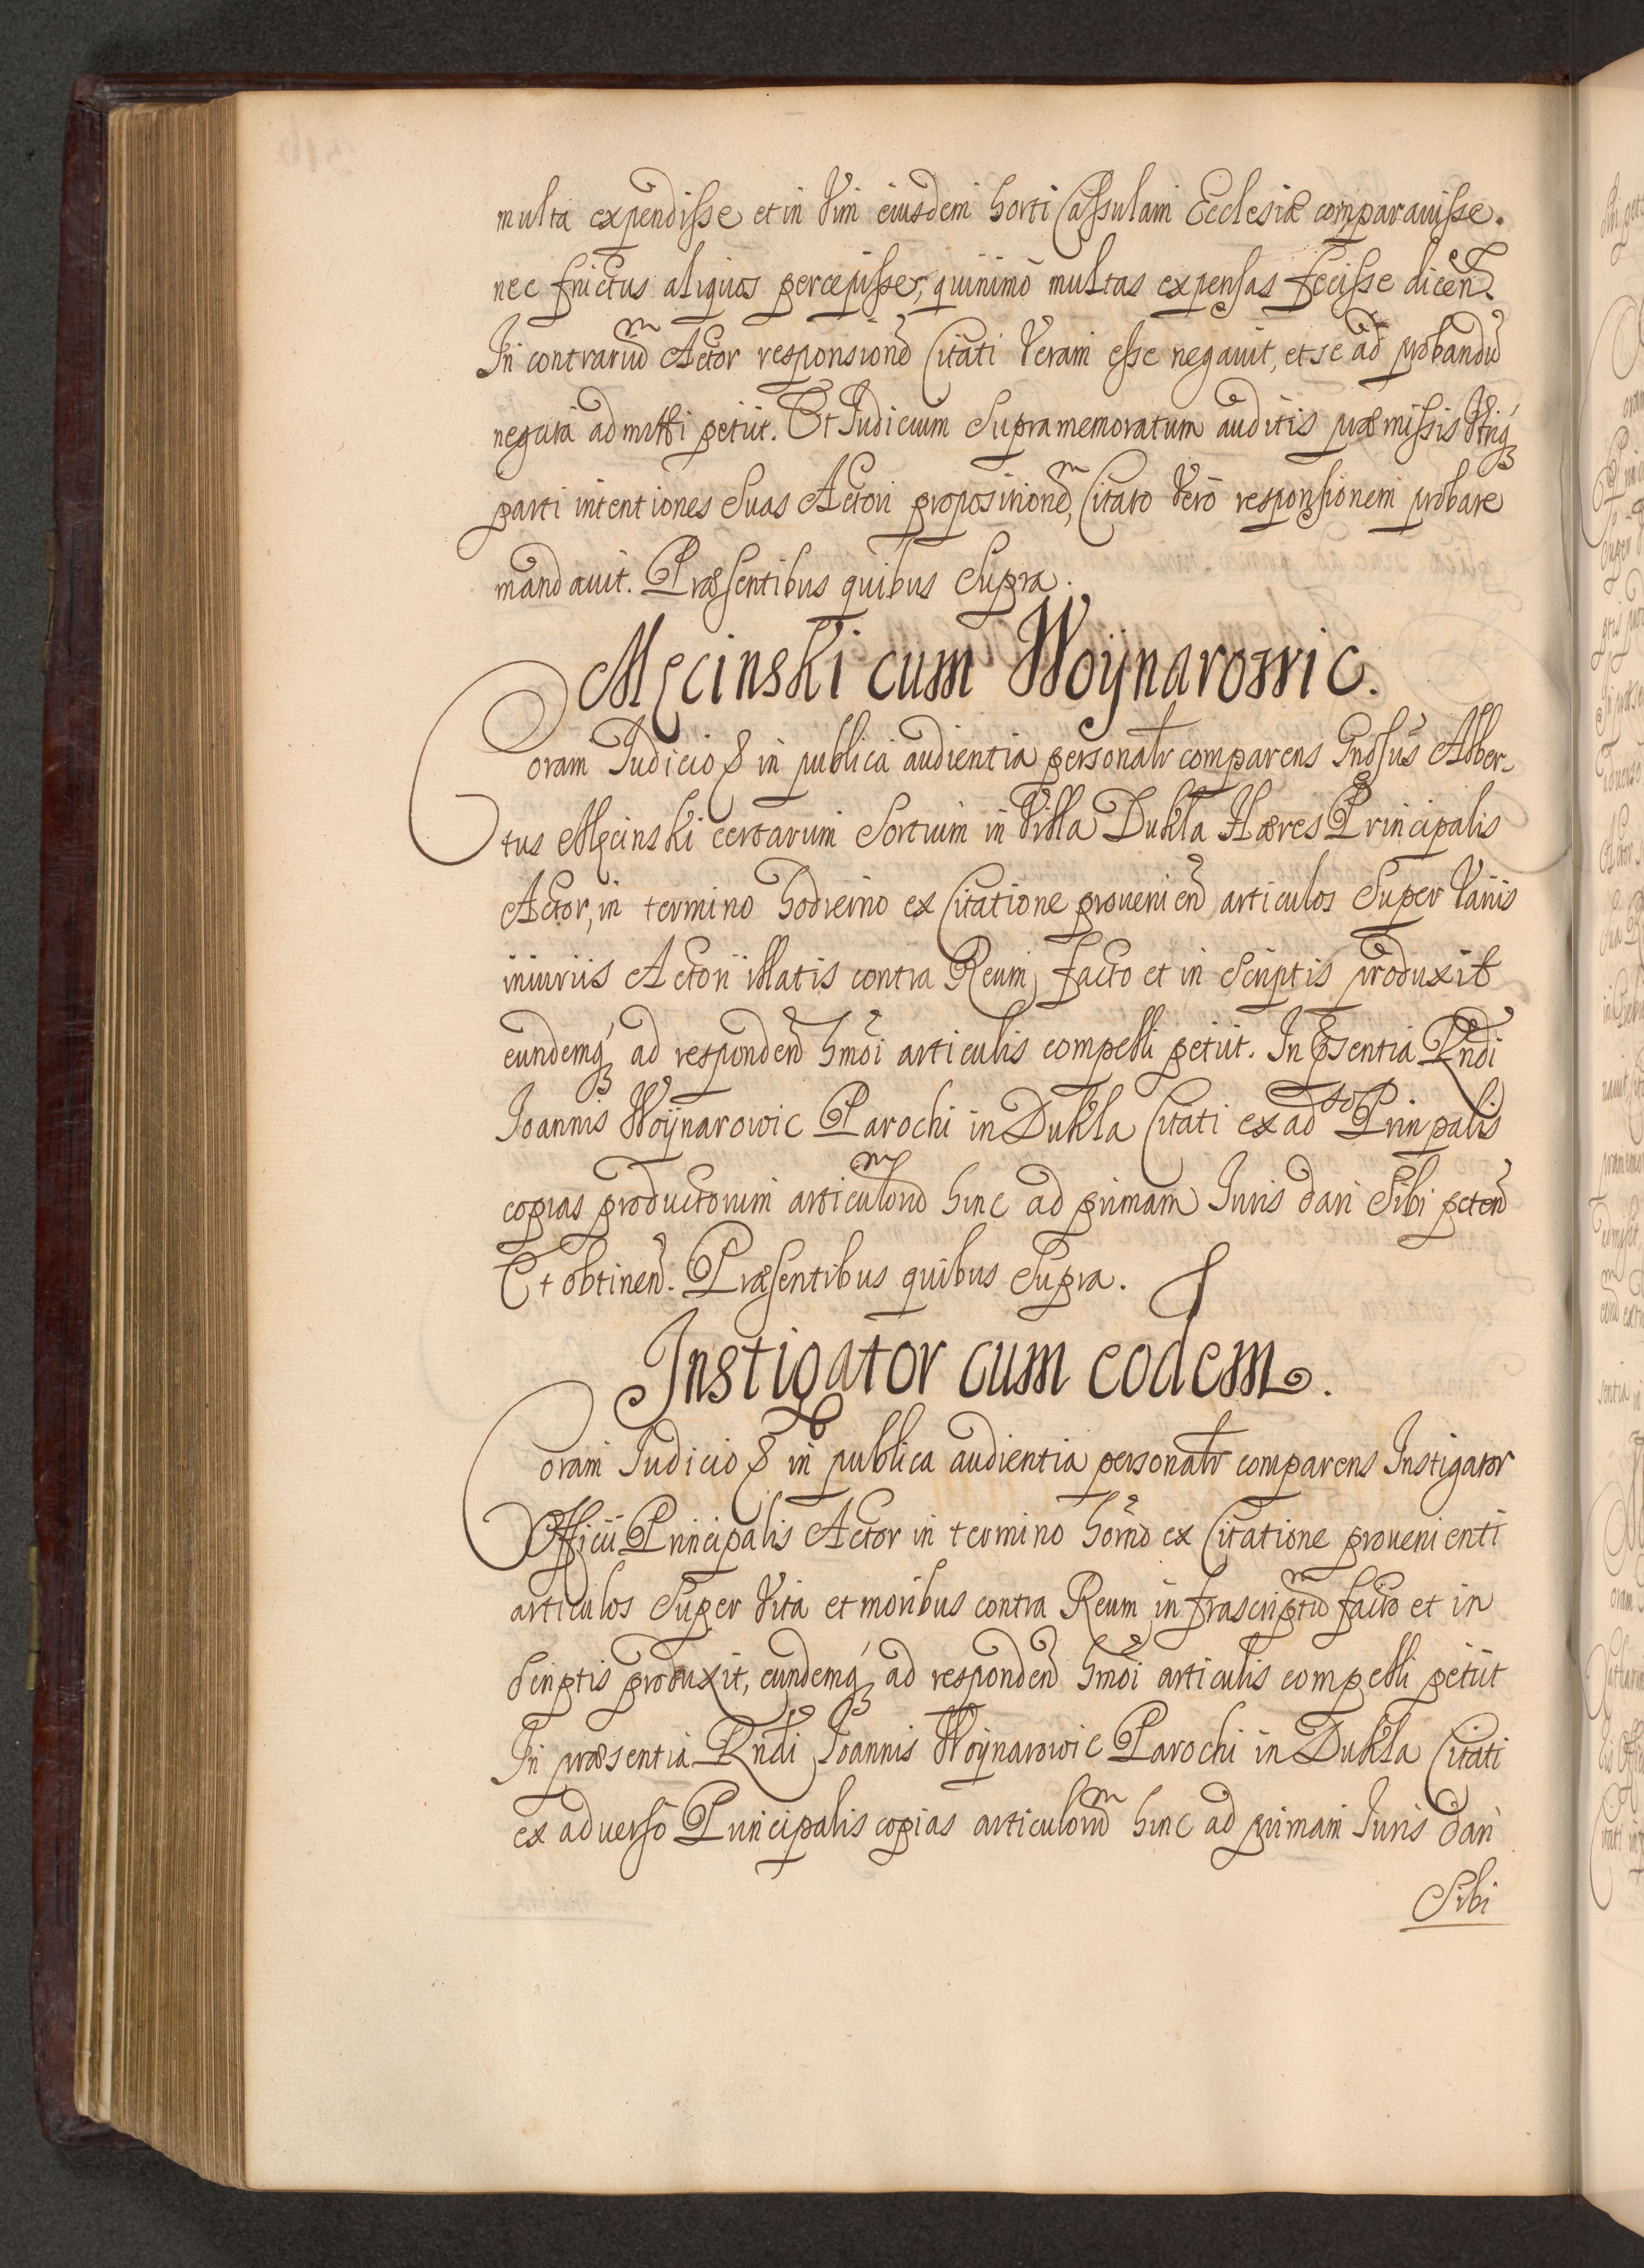 multa expendisse et in Vim eiusdem horti Cassulam Ecclesiæ comparauisse.
nec fructus aliquos percepisse, quinimò multas expensas fecisse dicen.
In contrariũ Actor responsionẽ Citati Veram esse negauit, et se ad probandũ
negata admitti petijt. Et Iudicium Supramemoratum auditis præmissis Vtriq́ꝫ
parti intentiones Suas Actori propositionẽ, Citato Verò responsionem probare
mandauit. Præsentibus quibus Supra.
Męcinski cum Woÿnarowic.
Coram Iudicio & in publica audientia personalr comparens Gnosus Alber-
tus Męcinski certarum Sortium in Villa Dukla Hæres Principalis
Actor, in termino hodierno ex Citatione prouenien articulos Super Varijs
iniurijs Actori illatis contra Reum facto et in Scriptis produxit
eundemq́ꝫ ad responden hmõi articulis compelli petijt. In Pñsentia Rndi
Ioannis Woÿnarowic Parochi in Dukla Citati ex adso Prinpalis
copias productorum articulorũ hinc ad primam Iuris dari Sibi peten
Et obtinen. Præsentibus quibus Supra.
Instigator cum eodem.
Coram Iudicio & in publica audientia personalr comparens Instigator
Officij Principalis Actor in termino horno ex Citatione prouenienti
articulos Super Vita et moribus contra Reum infrascriptũ facto et in
Scriptis produxit, eundemq́ꝫ ad responden hmõi articulis compelli petijt
In præsentia Rndi Ioannis Woÿnarowic Parochi in Dukla Citati
ex aduerso Principalis copias articulorũ hinc ad primam Iuris dari
Sibi